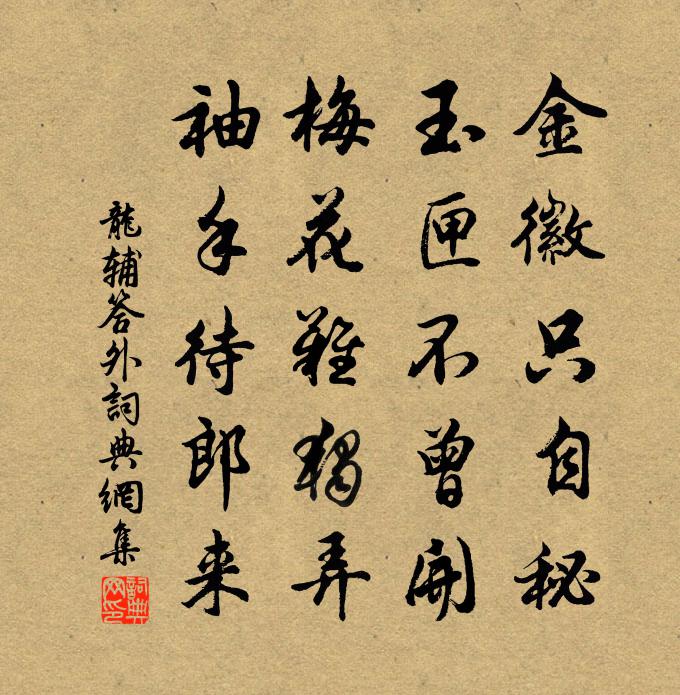 金徽只自秘
玉匣不曾開
梅花難獨弄
袖手待郎来
龍辅答外詞典網集
詞典網印